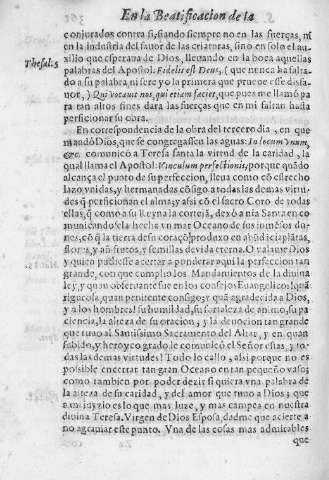 En la Beatificacion de la
conjurados contra si, fiando siempre no en las fuerças, ni
en la industria del fauor de las criaturas, sino en solo el auxi
lio que esperaua de Dios, lleuando en la boca aquellas
Thesal. 5 palabras del Apostol. Fidelis est Deus, ( que nunca ha falta-
do a su palabra, ni sere yo la primera que prueue esse disfa-
uor,) Qui vocauit nos, qui etiam faciet, que pues me llamó pa
ra tan altos fines dara las fuerças que en mi faltan hasta
perficionar su obra.
En correspondencia de la obra del tercero dia, en que
mandò Dios, que se congregassen las aguas. In locum vnum,
&c. comunicó a Teresa santa la virtud de la caridad, la
qual llama el Apostol. Vinculum perfectionis, porque quãdo
alcança el punto de superfeccion, lleua como cõ estrecho
lazo vnidas, y hermanadas cõsigo a todas las demas virtu
des q̃ perficionan el alma; y assi cõ el sacro Coro de todas
ellas, q̃ como a su Reyna la cortejã, dexó a nia Santa en co
municandosela hecha vn mar Oceano de sus inmẽsos do-
nes, cõ q̃ la tierra de su coraçõ produxo en abũdãcia plãtas,
flores, y aũ frutos, y semillas de vida eterna. O valame Dios
y quien pudiesse acertar a ponderar aqui la perfeccion tan
grande, con que cumplio los Mandamientos de la diuina
ley, y quan obseruante fue en los consejos Euangelicos! quã
rigurosa, quan penitente consigo; y quã agradecida a Dios,
y a los hombres! su humildad, su fortaleza de animo, su pa
ciencia, la alteza de su oracion, y la deuocion tan grande
que tuuo al Santissimo Sacramento del Altar, y en quan
subido, y heroyco grado le comunicó el Señor estas, y to-
das las demas virtudes! Todo lo callo, assi porque no es
possible encerrar tan gran Oceano en tan pequeño vaso;
como tambien por poder dezir si quiera vna palabra de
la alteza de su caridad, y del amor que tuuo a Dios; que
a mi juyzio es lo que mas luze, y mas campea en nuestra
diuina Teresa. Virgen de Dios Esposa, dadme que acierte a
no agrauiar este punto. Vna de las cosas mas admirables
que